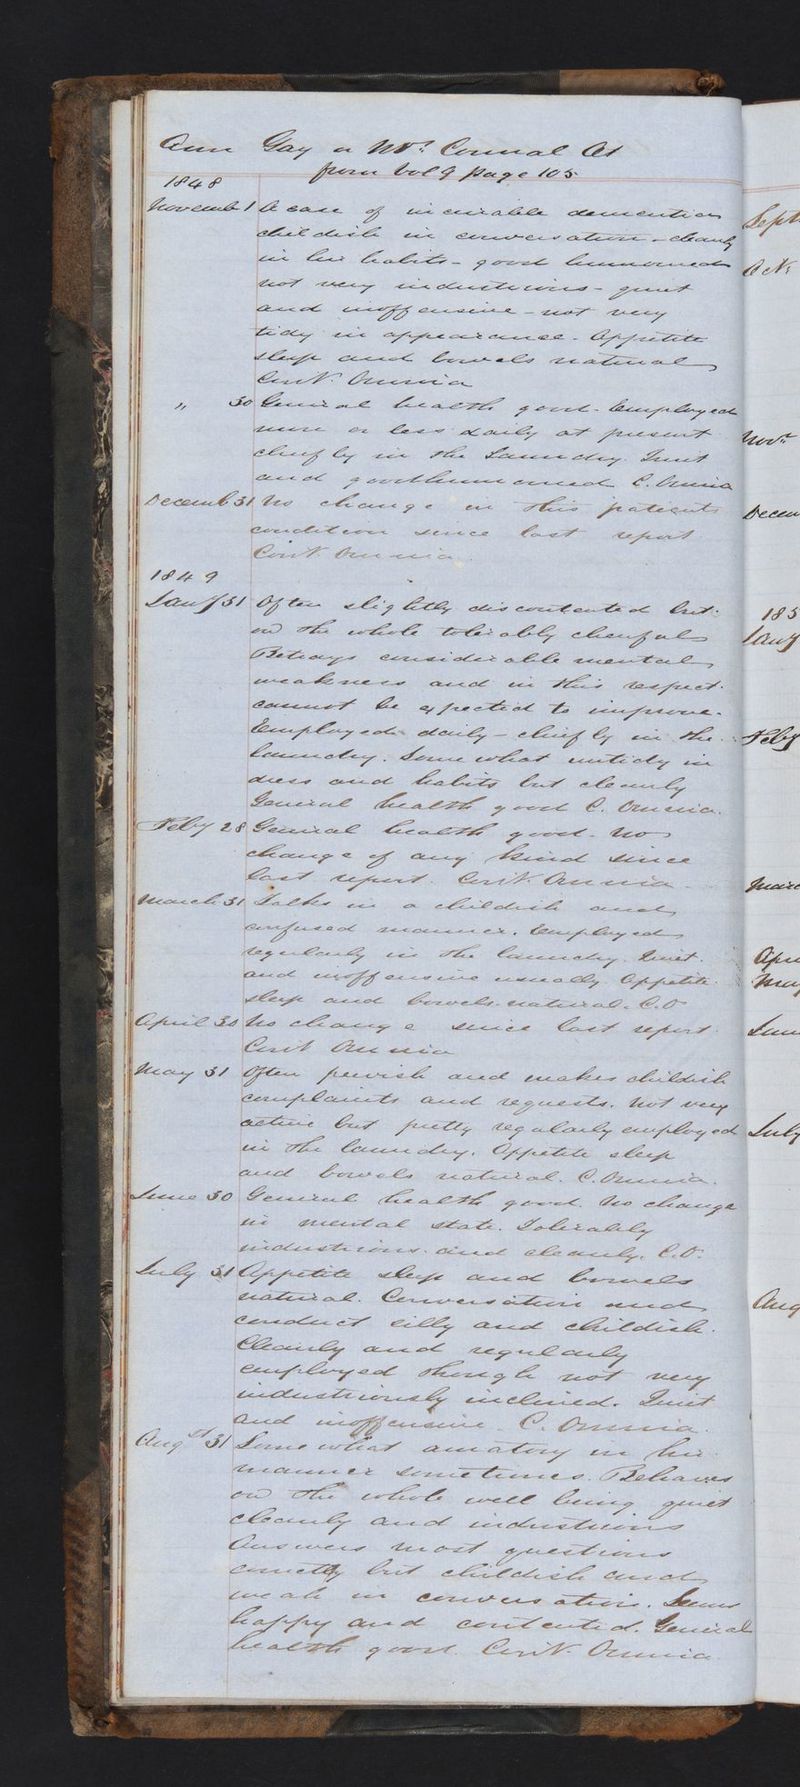 Ann Gay or Mrs. Connal At
from Vol 9 page 105
1848
Novemb 1 A case of incurable dementia
childish in conversation - cleanly
in her habits - good humoured
not very industrious - quiet
and inoffensive - not very
tidy in appearance. Appetite
sleep and bowels natural
Cont. Omnia
" 30 General health good. Employed
more or less daily at present
chiefly in the Laundry. Quiet
and goodhumoured C. Omnia
Decemb 31 No change in this patients
condition since last report
Cont. Omnia.
1849
Jany 31 Often slightly discontented but
on the whole tolerably cheerful
Betrays considerable mental
weakness and in this respect
cannot be expected to improve.
Employed daily - chiefly in the
laundry. Somewhat untidy in
dress and habits but cleanly
General health good C. Omnia.
Feby 28 General health good. No
change of any kind since
last report. Cont. Omnia
March 31 Talks in a childish and
confused manner. Employed
regularly in the laundry. Quiet
and inoffensive usually. Appetite
sleep and bowels natural. C.O
April 30 No change since last report.
Cont Omnia
May 31 Often peevish and makes childish
complaints and requests. Not very
active but pretty regularly employed
in the laundry. Appetite sleep
and bowels natural. C. Omnia.
June 30 General health good. No change
in mental state. Tolerably
industrious and cleanly. C.O.
July 31 Appetite sleep and bowels
natural. Conversation and
conduct silly and childish.
Cleanly and regularly
employed though not very
industriously inclined. Quiet
and inoffensive. C. Omnia.
Augst 31 Somewhat amatory in her
manner sometimes. Behaves
on the whole well being quiet
cleanly and industrious
Answers most questions
correctly but childish and
weak in conversation. Seems
happy and contented. General
health good. Cont. Omnia.
Sept
Oct
Novr
Decem
185
Jany
Feby
Marc
Apri
May
June
July
Aug